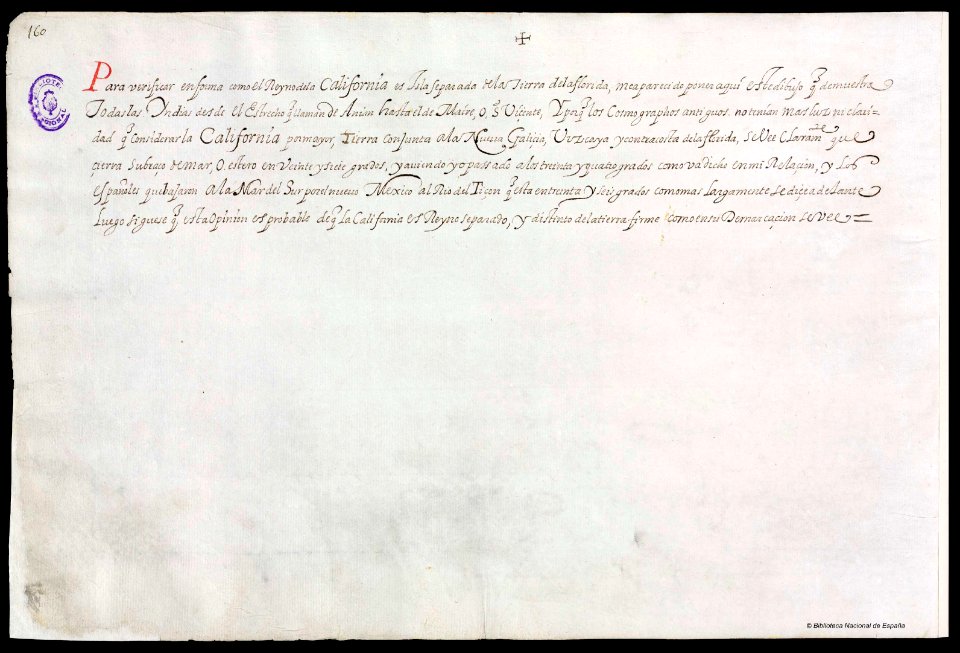 160
Para verificar en forma como el Reyno dela California es Isla separado dela Tierra dela florida, me a parecido poner aquí este dibujo q̃ demuestra
Todas las Yndias desde el Estrecho q̃ llaman de Anian hasta el de Maire, O, S. Viçente, Y pq̃ los Cosmographos antiguos no tenian mas luz ni clari-
dad q̃ considerar la California por mayor, Tierra conjunta a la Nueva Galicia, Vizcaya y contracosta dela florida, se Vee claram.te que
çierra su braço de mar, O estero en Veinte y siete grados, y aviendo yo passado a los treinta y quatro grados como va dicho en mi Relaçion, y Los
españoles que bajaron a la Mar del Sur por el nuevo Mexico al Rio del Tiçon q̃ esta en treinta y seis grados como mas largamente se diçe adelante
Luego siguese q̃ esta Opinion es probable de q̃ la California es Reyno separado, y distinto de la tierra firme como en su Demarcaçion se vee
© Biblioteca Nacional de España